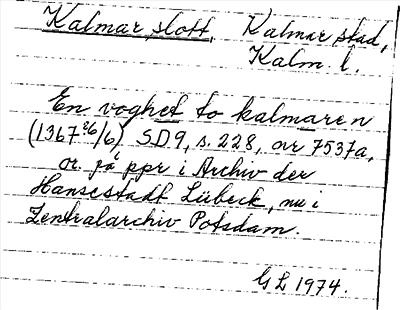 Kalmar slott, Kalmar stad,
Kalm. l.
En voghet to kalmaren
(1367 26/6) SD9, s. 228, nr 7537a,
or. på ppr i Archiv der
Hansestadt Lübeck, nu i
Zentralarchiv Potsdam.
GL 1974.